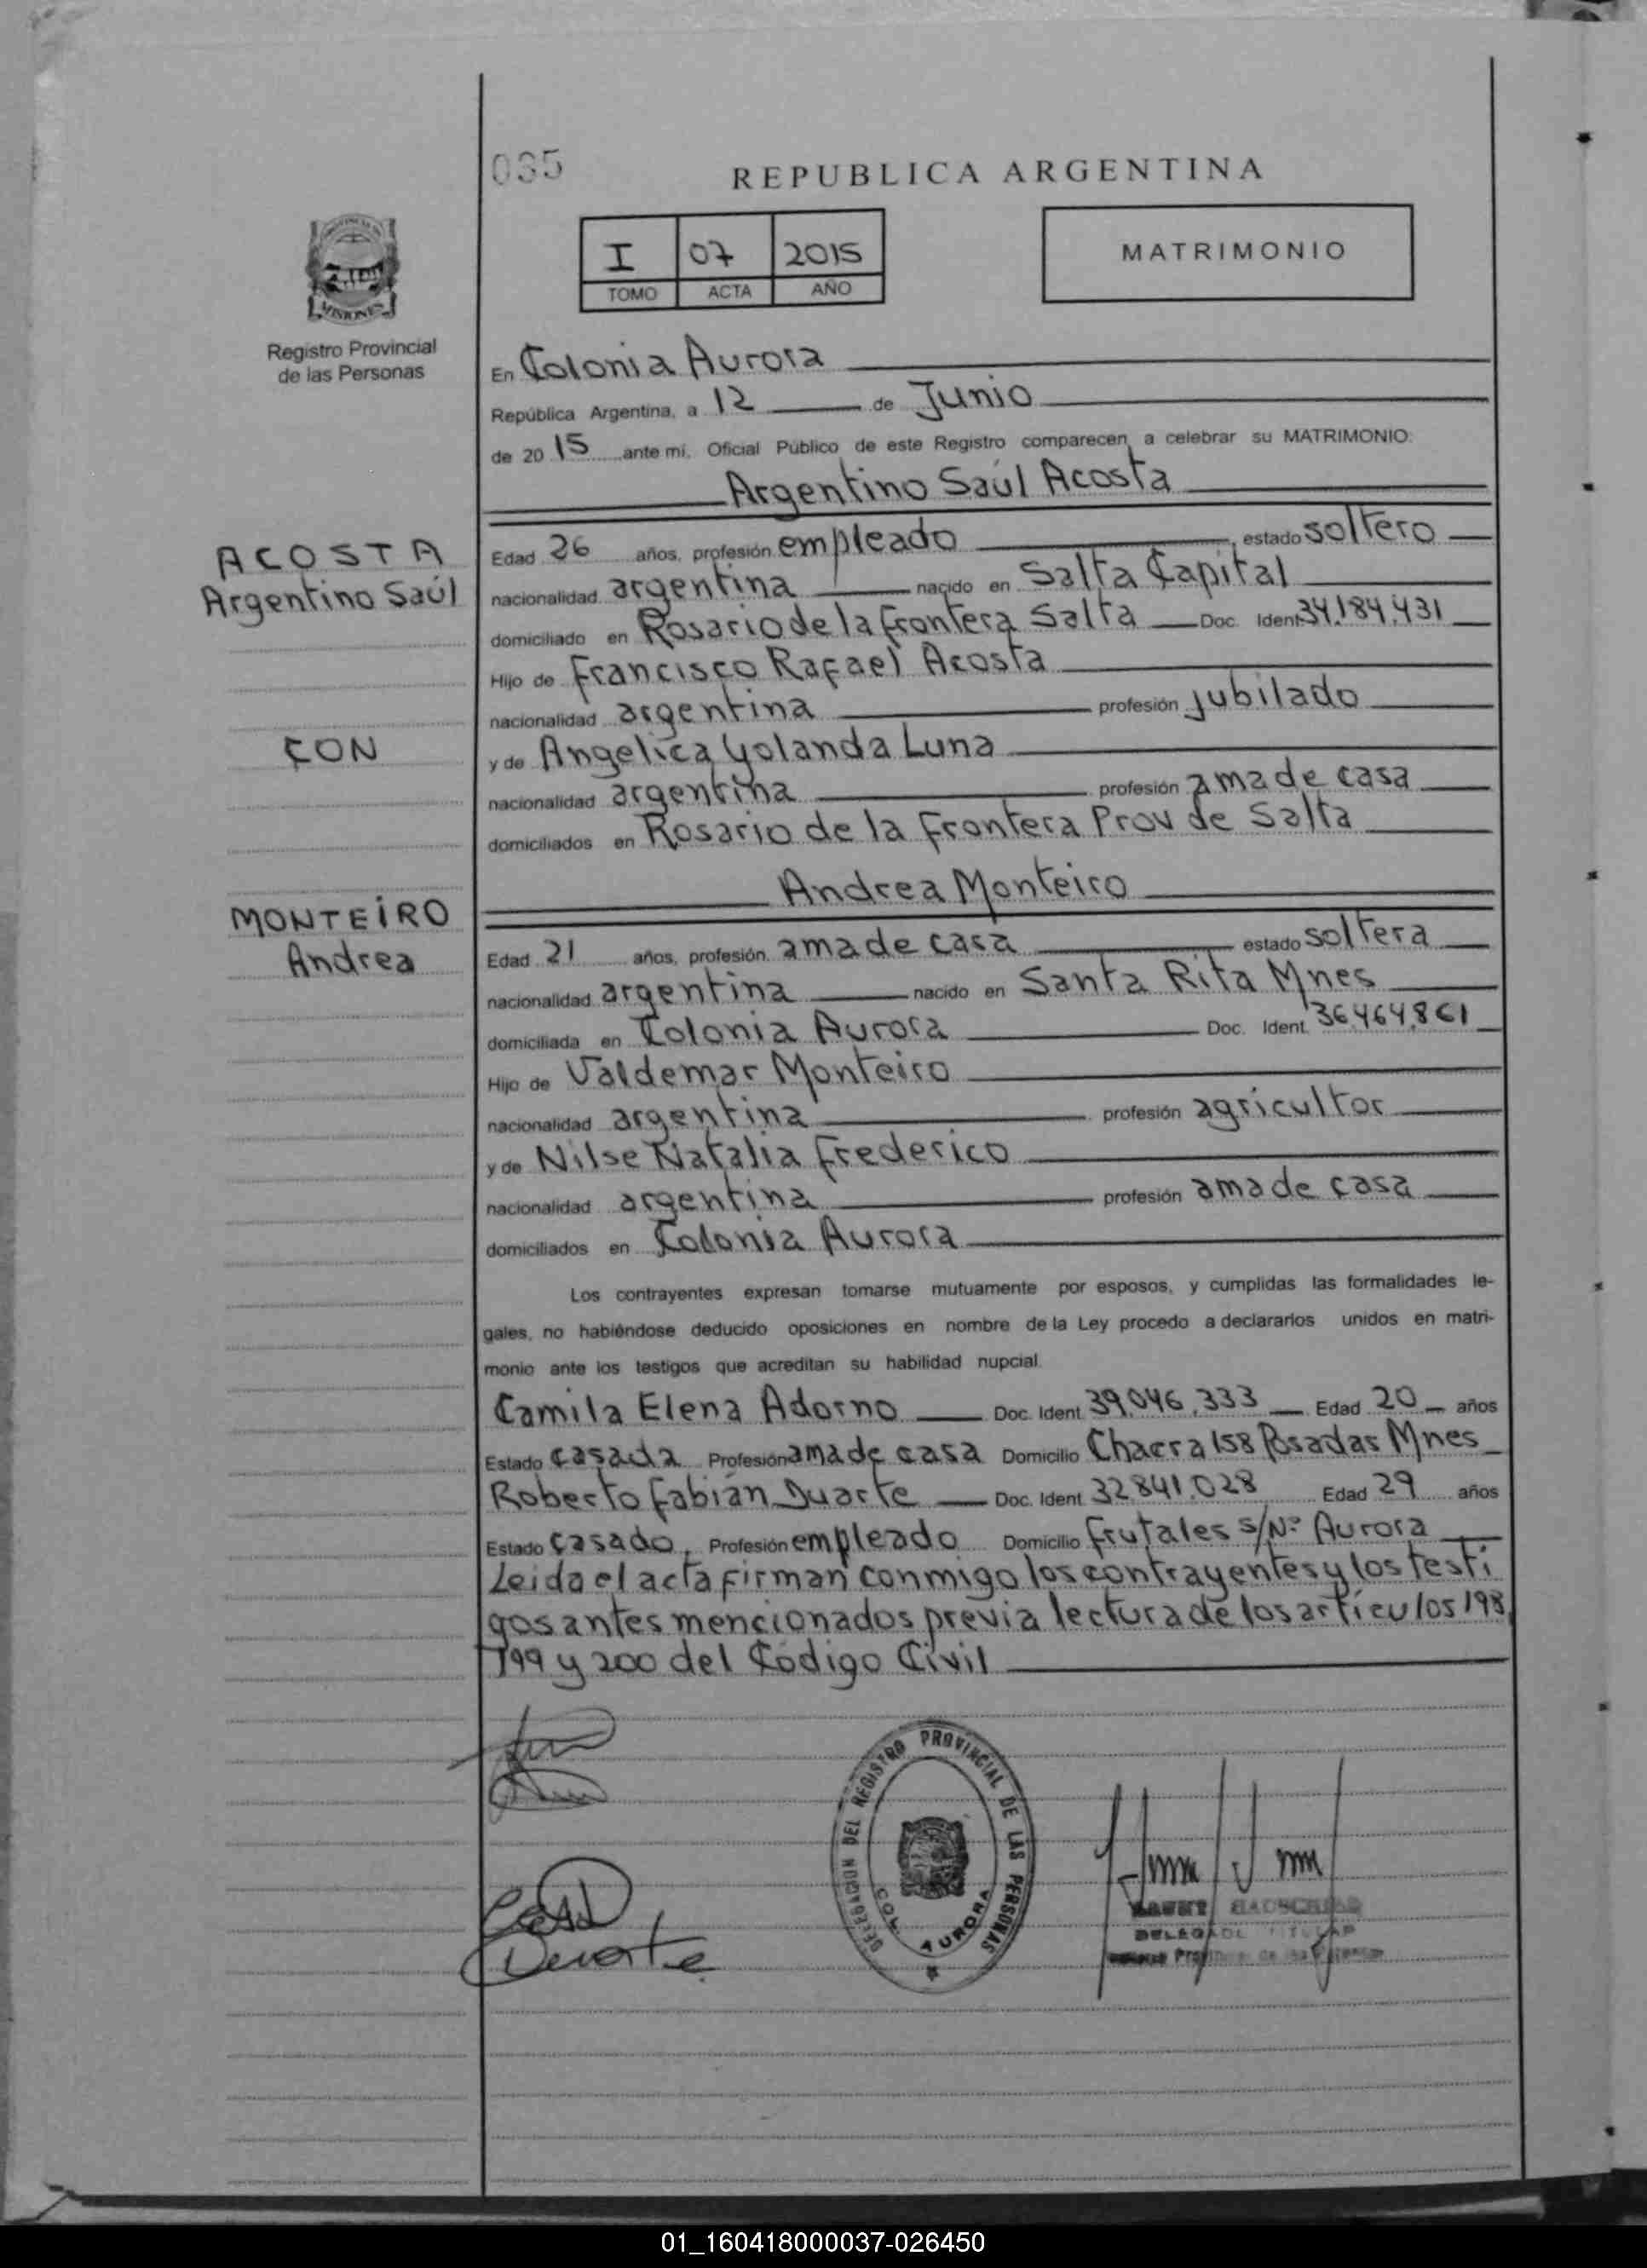 035
REPUBLICA ARGENTINA
I 07 2015
TOMO ACTA AÑO
MATRIMONIO
MISIONES
Registro Provincial
de las Personas
En Colonia Aurora
República Argentina, a 12 de Junio
de 2015 ante mí, Oficial Público de este Registro comparecen a celebrar su MATRIMONIO:
Argentino Saúl Acosta
ACOSTA
Argentino Saúl
CON
MONTEIRO
Andrea
Edad 26 años, profesión empleado, estado soltero
nacionalidad argentina nacido en Salta Capital
domiciliado en Rosario de la Frontera Salta Doc. Ident 34.184.431
Hijo de Francisco Rafael Acosta
nacionalidad argentina profesión jubilado
y de Angelica Yolanda Luna
nacionalidad argentina profesión ama de casa
domiciliados en Rosario de la Frontera Prov de Salta
Andrea Monteiro
Edad 21 años, profesión ama de casa estado soltera
nacionalidad argentina nacido en Santa Rita Mnes
domiciliada en Colonia Aurora Doc. Ident. 36.464.861
Hijo de Valdemar Monteiro
nacionalidad argentina profesión agricultor
y de Nilse Natalia Frederico
nacionalidad argentina profesión ama de casa
domiciliados en Colonia Aurora
Los contrayentes expresan tomarse mutuamente por esposos, y cumplidas las formalidades le-
gales, no habiéndose deducido oposiciones en nombre de la Ley procedo a declararlos unidos en matri-
monio ante los testigos que acreditan su habilidad nupcial.
Camila Elena Adorno Doc. Ident. 39.046.333 Edad 20 años
Estado casada Profesión ama de casa Domicilio Chacra 158 Posadas Mnes
Roberto Fabián Duarte Doc. Ident. 32841.028 Edad 29 años
Estado casado, Profesión empleado Domicilio Frutales S/Nº Aurora
Leida el acta firman conmigo los contrayentes y los testi
gos antes mencionados previa lectura de los artículos 198,
199 y 200 del Código Civil
DELEGACION DEL REGISTRO PROVINCIAL DE LAS PERSONAS
COL. AURORA
Duarte
01_160418000037-026450